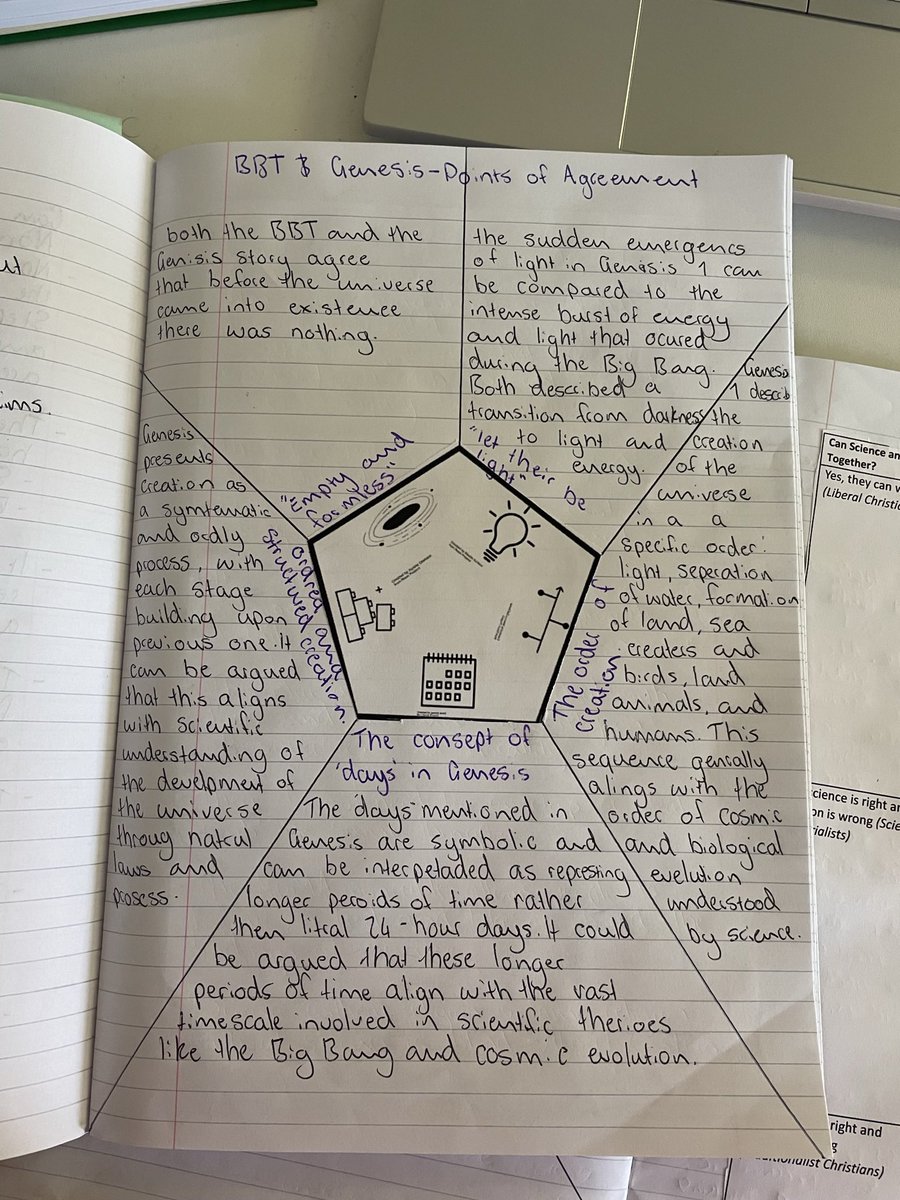 BBT & Genesis - Points of Agreement
both the BBT and the
Genisis story agree
that before the universe
came into existence
there was nothing.
"Empty and
formless"
the sudden emergencs
of light in Genesis 1 can
be compared to the
intense burst of energy
and light that ocured
during the Big Bang.
Both described a
transition from darkness
to light and
energy.
"let their be
light"
Genesis
1 describ
the
creation
of the
universe
in a a
specific order:
light, seperation
of water, formation
of land, sea
creaters and
birds, land
animals, and
humans. This
sequence genrally
alings with the
order of cosmic
and biological
evelution
understood
by science.
The order of
creation
The consept of
'days' in Genesis
The 'days' mentioned in
Genesis are symbolic and
can be interpetaded as represting
longer peroids of time rather
then litral 24-hour days. It could
be argued that these longer
periods of time align with the vast
timescale involved in scientfic therioes
like the Big Bang and cosmic evolution.
Genesis
presents
creation as
a symtematic
and ordly
process, with
each stage
building upon
previous one. It
can be argued
that this aligns
with scientific
understanding of
the develpment of
the universe
throug natrul
laws and
prosess.
ordred and
structured creation.
ims.
Can Science an
Together?
Yes, they can w
(Liberal Christia
cience is right an
on is wrong (Scie
ialists)
right and
itionalist Christians)